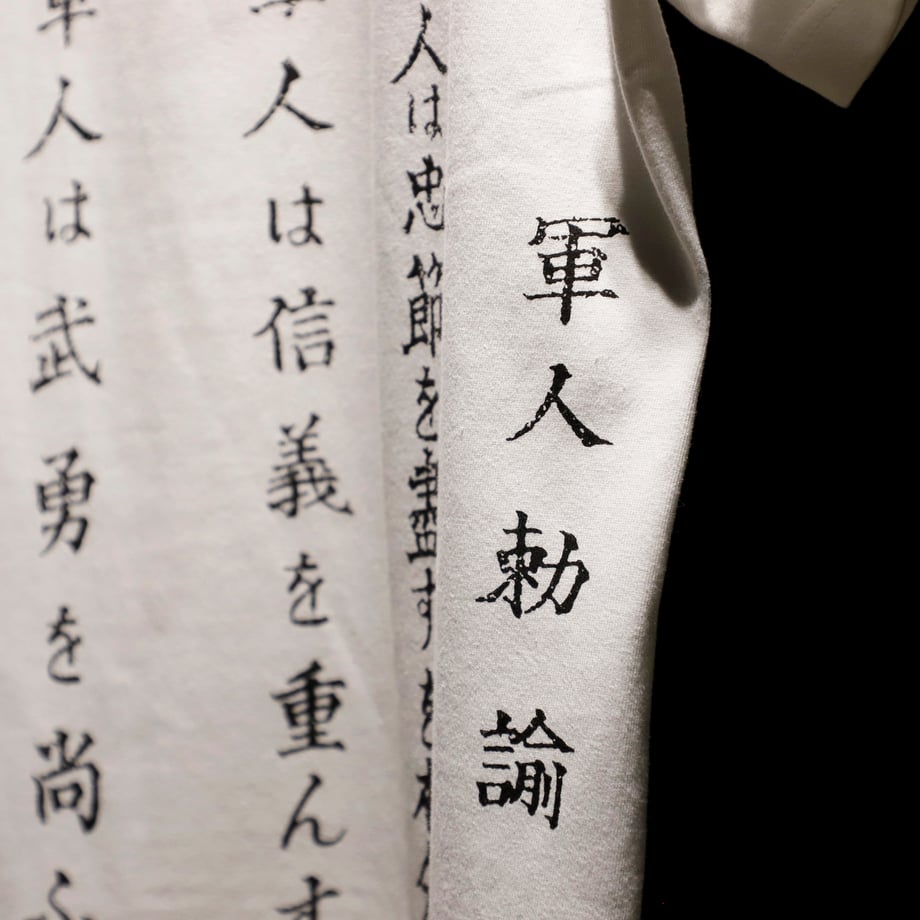 軍人勅諭
人は忠節を盡す
軍人は信義を重んす
軍人は武勇を尚ふ